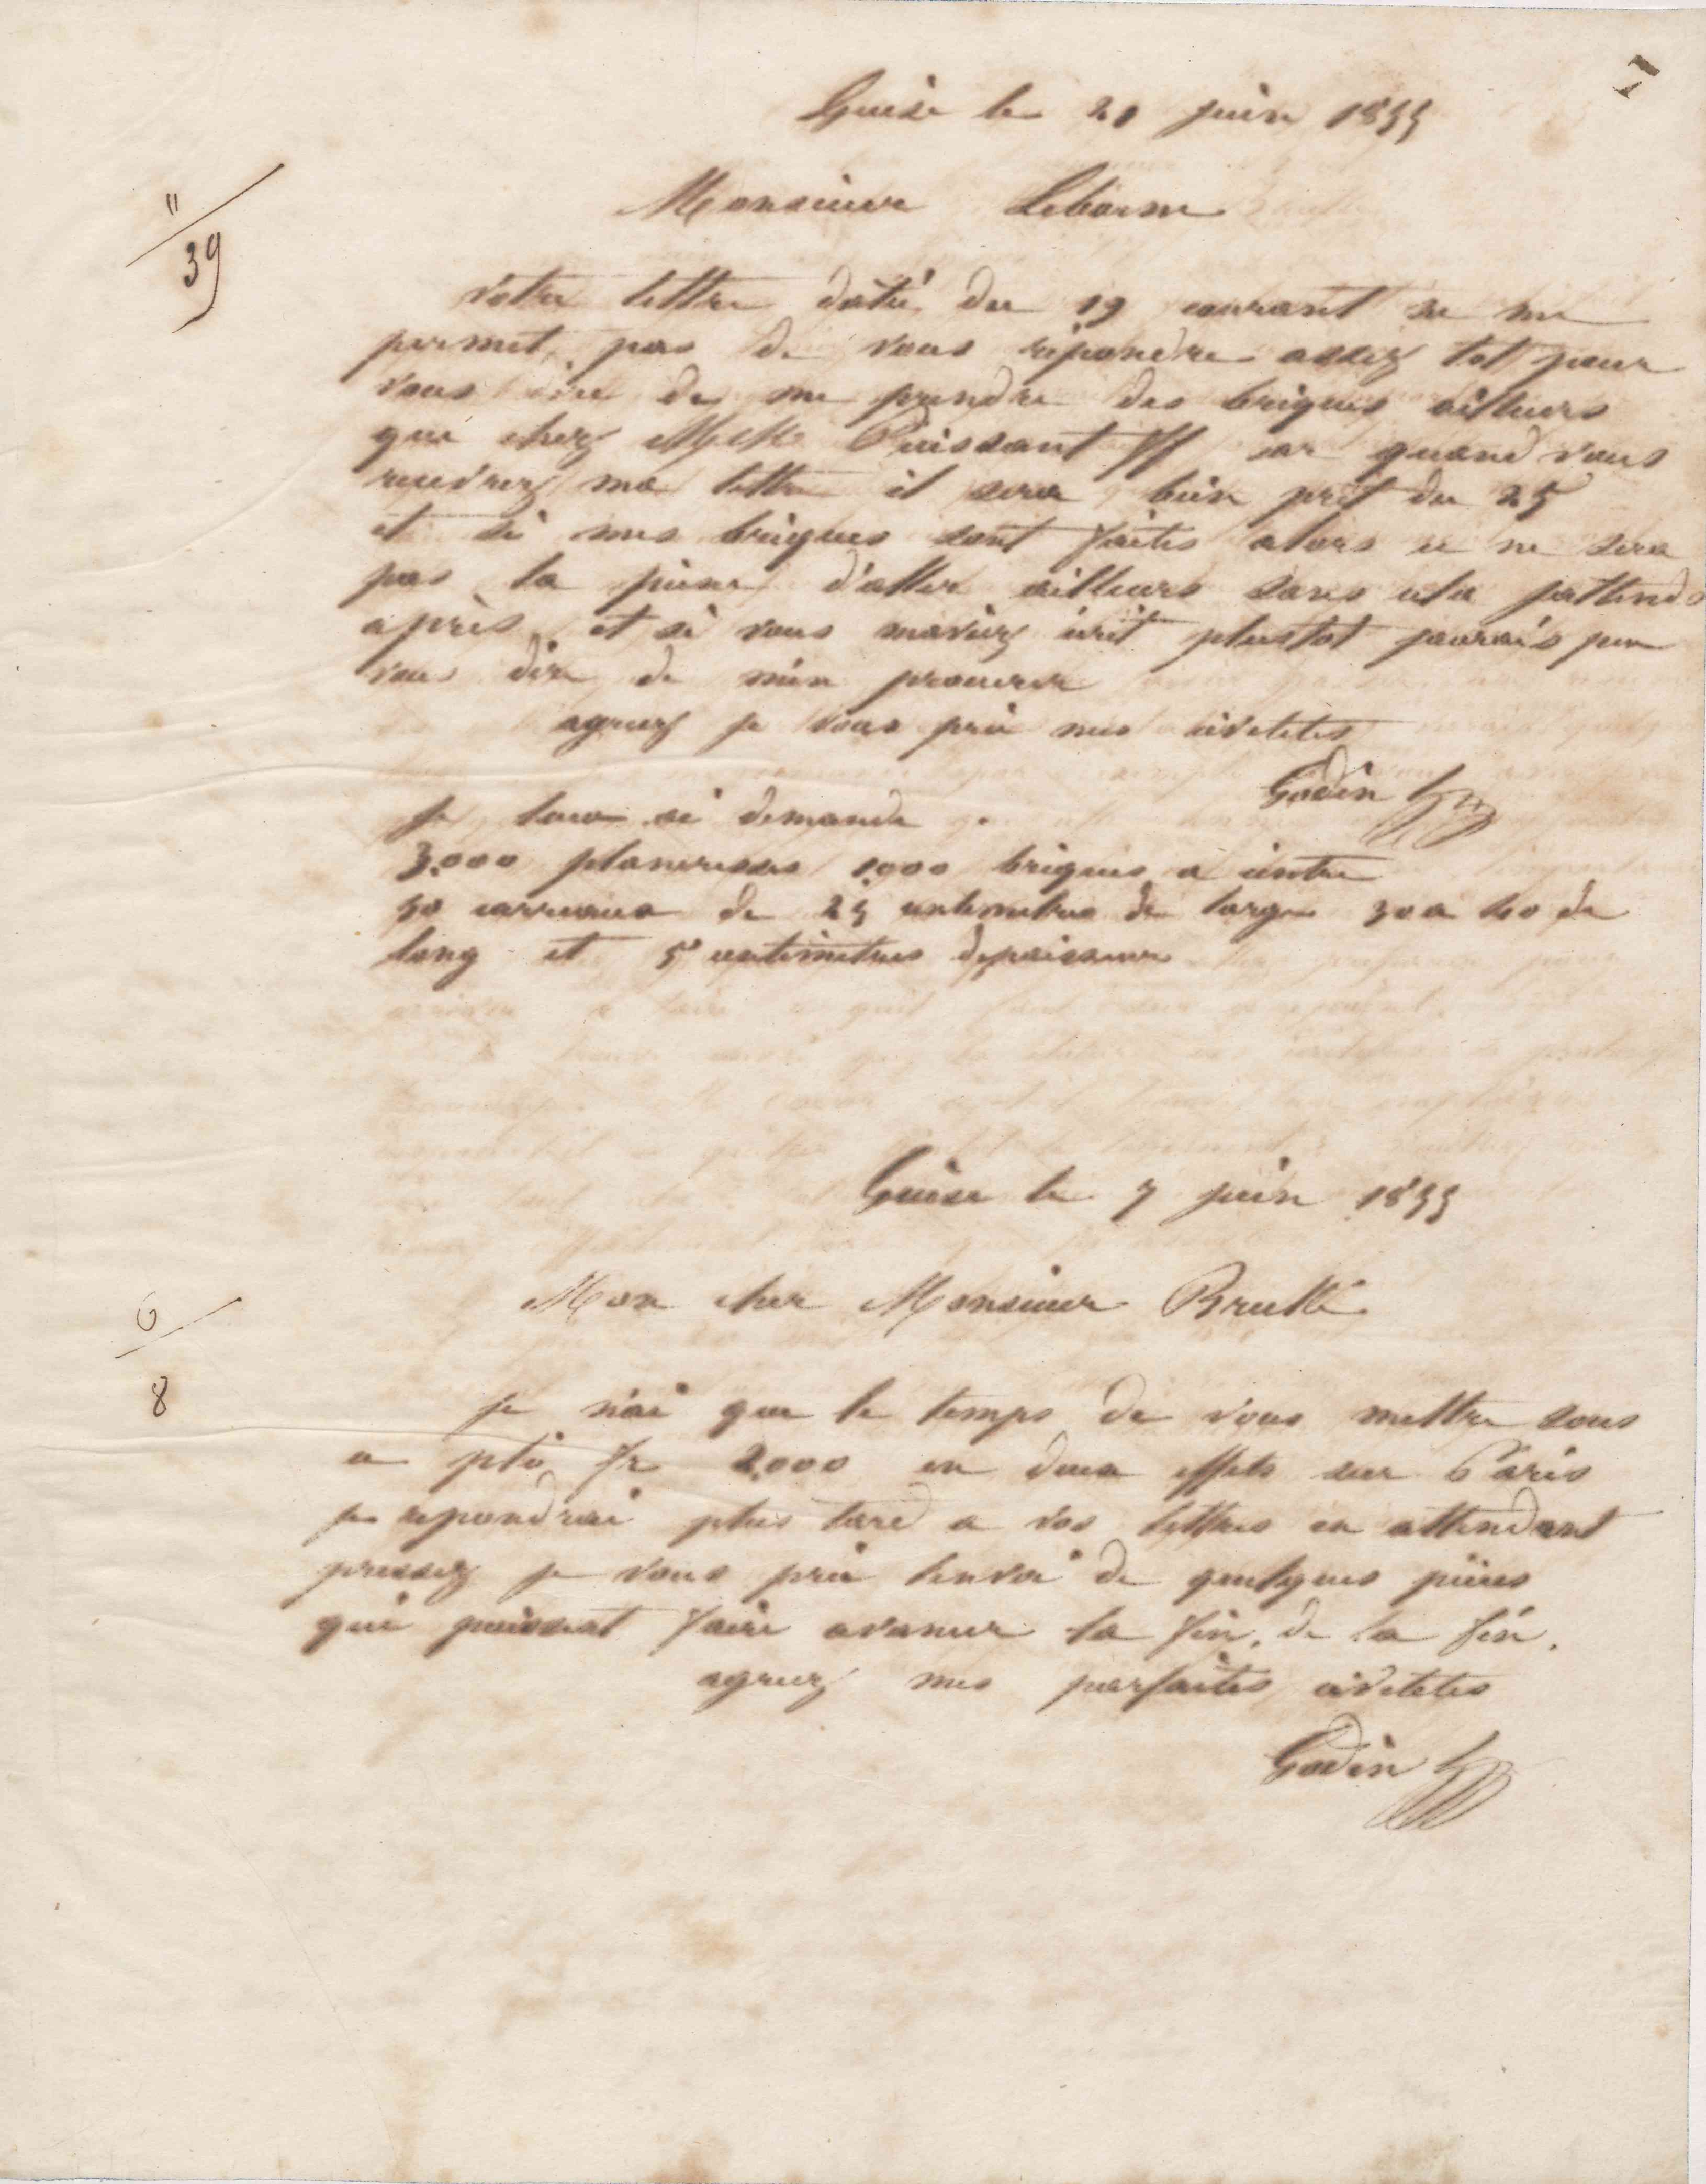 7
Guise le 21 juin 1855
Monsieur Leborne
"/39
votre lettre daté du 19 courant ne me
permet pas de vous répondre assez tot pour
vous dire de me prendre des briques ailleurs
que chez MM Puissant ff car quand vous
recevrez ma lettre il sera bien prêt du 25
et si mes briques sont faites alors ce ne sera
pas la peine d'aller ailleurs sans cela j'attends
après et si vous maviez écrit plustot jaurais pu
vous dire de m'en procurer
agreez je vous prie mes civilités
Godin
je leur ai demandé
3.000 planeresses 1000 briques a cintre
50 carreaux de 25 centimetres de large 30 a 40 de
long et 5 centimetres depaisseur
Guise le 7 juin 1855
Mon cher Monsieur Brullé
6/8
je n'ai que le temps de vous mettre sous
ce pli fr 2.000 en deux effets sur Paris
je repondrai plus tard a vos lettres en attendant
pressez je vous prie lenvoi de quelques pièces
qui puissent faire avancer la fin de la fin.
agreez mes parfaites civilites
Godin